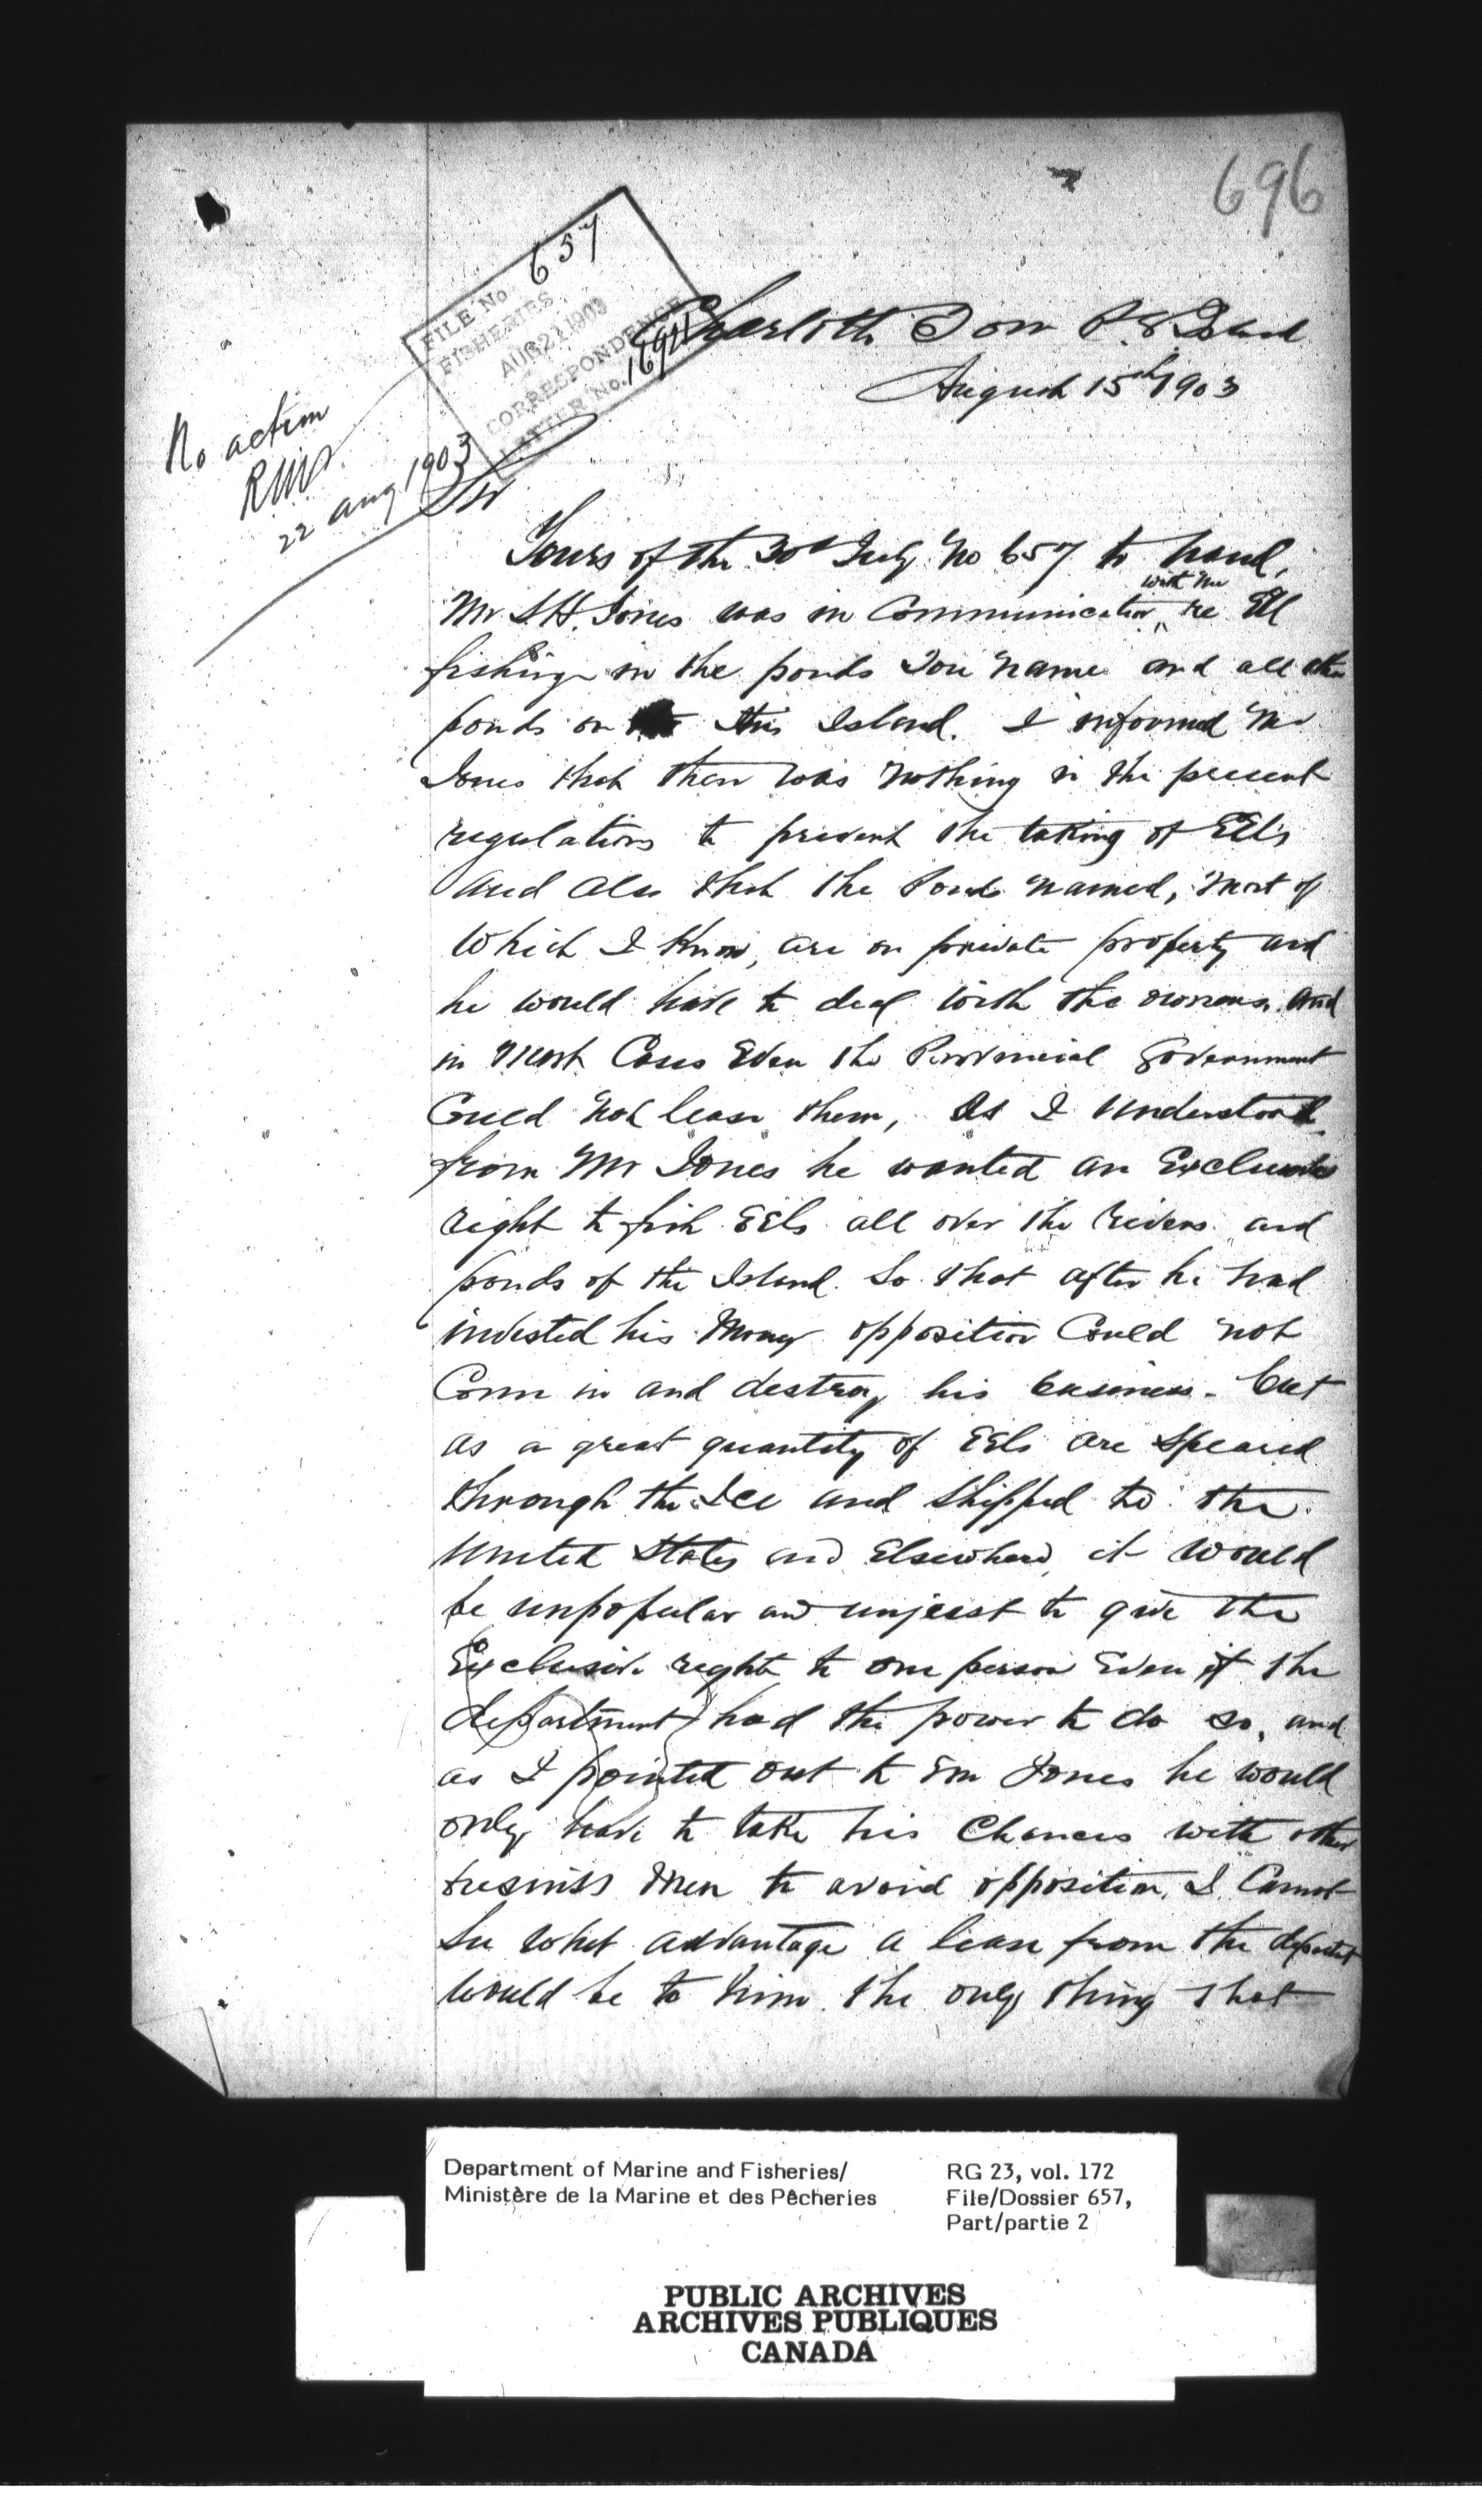 696
FILE No 657
FISHERIES
AUG 21 1903
CORRESPONDENCE
LETTER No.
Charlotte Town P. E. Island
August 15th 1903
No action
22 aug 1903
Sir
Yours of the 30th July No 657 to hand,
with me
Mr S H. Jones was in Communication re Eel
fishing in the ponds You name and all other
ponds on this Island. I informed Mr
Jones that there was nothing in the present
regulations to prevent the taking of EEls
and also that the Ponds named, most of
which I Know, are on private property and
he would have to deal with the owners. and
in most Cases Even the Provincial Government
Could not lease them, As I understood
from Mr Jones he wanted an Exclusive
right to fish EEls all over the rivers and
ponds of the Island. So that after he had
invested his Money opposition Could not
Come in and destroy his business - but
as a great quantity of EEls are speared
through the Ice and shipped to the
United States and Elsewhere, it would
be unpopular and unjust to give the
Exclusive right to one person Even if the
department had the power to do so, and
as I pointed out to Mr Jones he would
only have to take his Chances with other
business Men to avoid opposition. I Cannot
See what advantage a lease from the department
would be to him. the only thing that
Department of Marine and Fisheries/
Ministère de la Marine et des Pêcheries
RG 23, vol. 172
File/Dossier 657,
Part/partie 2
PUBLIC ARCHIVES
ARCHIVES PUBLIQUES
CANADA